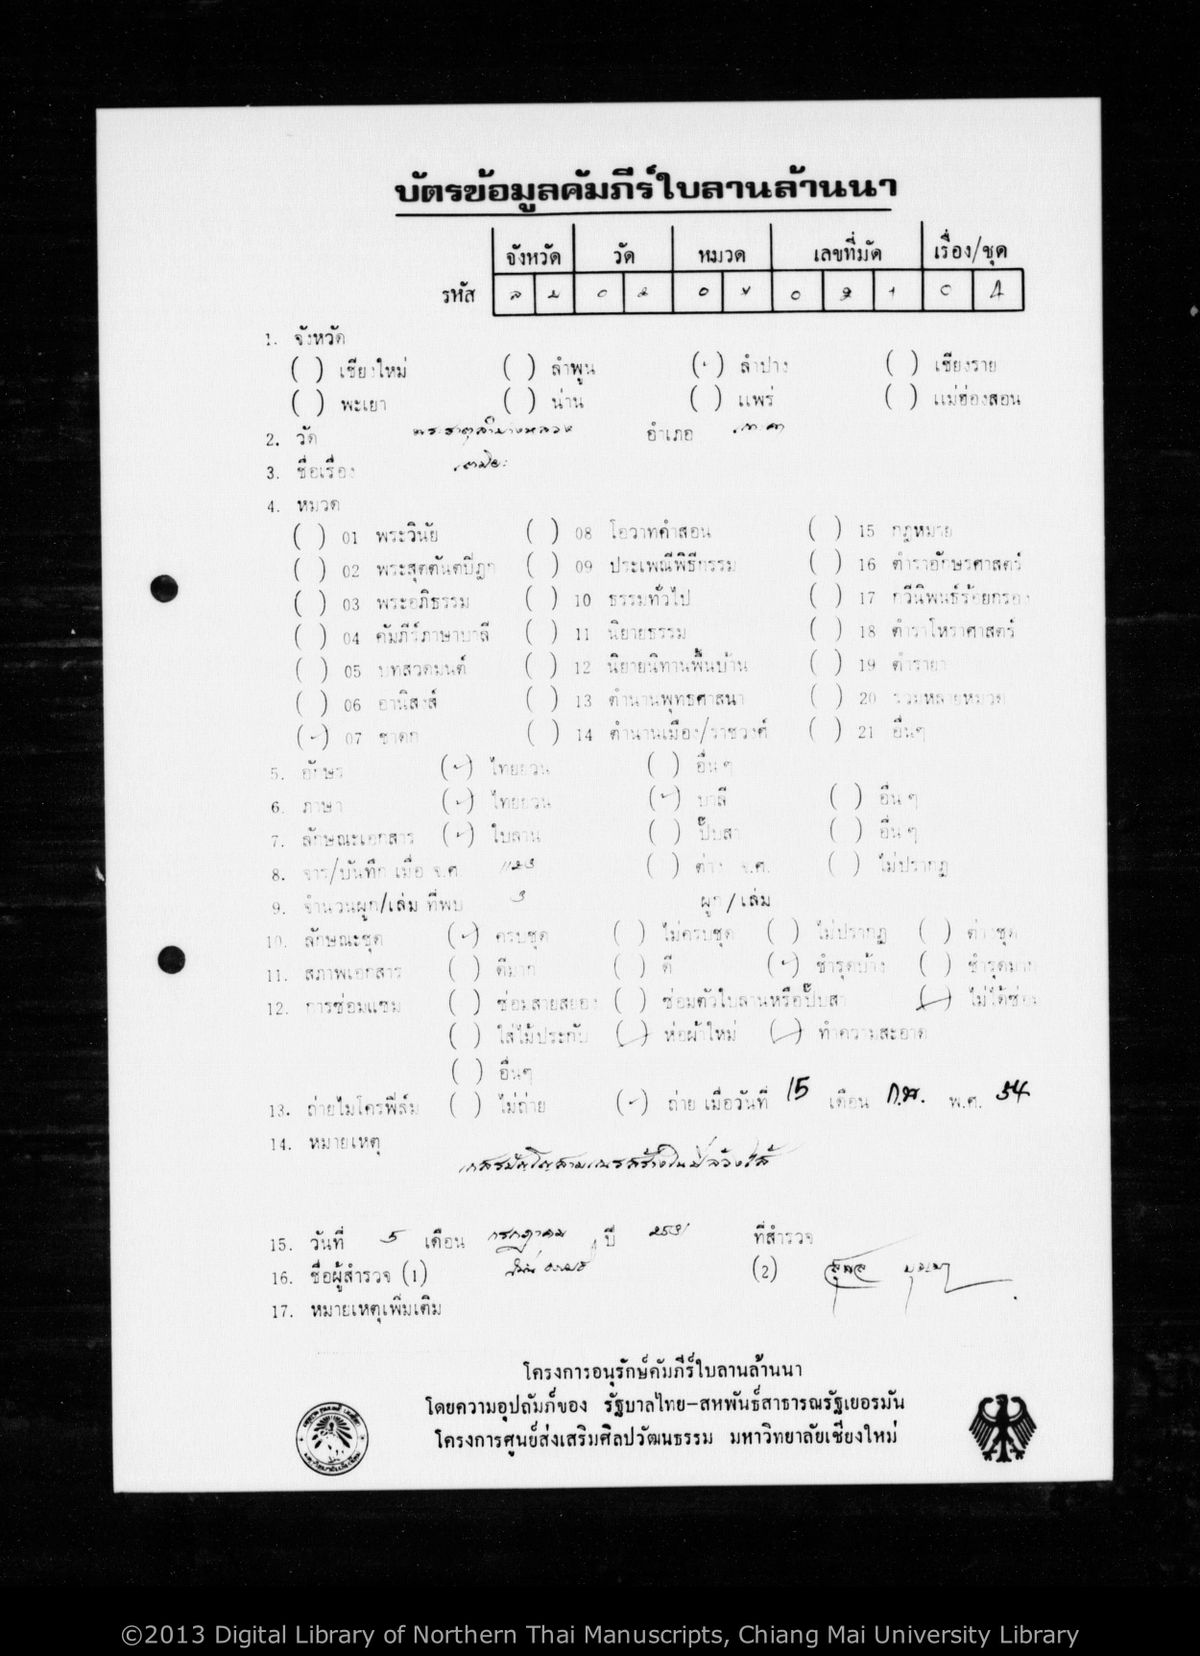 บัตรข้อมูลคัมภีร์ใบลานล้านนา
จังหวัด วัด หมวด เลขที่มัด เรื่อง/ชุด
รหัส
1. จังหวัด
( ) เชียงใหม่ ( ) ลำพูน (✓) ลำปาง ( ) เชียงราย
( ) พะเยา ( ) น่าน ( ) แพร่ ( ) แม่ฮ่องสอน
2. วัด พระธาตุลำปางหลวง อำเภอ เกาะคา
3. ชื่อเรื่อง เตมิยะ
4. หมวด
( ) 01 พระวินัย ( ) 08 โอวาทคำสอน ( ) 15 กฎหมาย
( ) 02 พระสุตตันตปิฎก ( ) 09 ประเพณีพิธีกรรม ( ) 16 ตำราอักษรศาสตร์
( ) 03 พระอภิธรรม ( ) 10 ธรรมทั่วไป ( ) 17 กวีนิพนธ์ร้อยกรอง
( ) 04 คัมภีร์ภาษาบาลี ( ) 11 นิยายธรรม ( ) 18 ตำราโหราศาสตร์
( ) 05 บทสวดมนต์ ( ) 12 นิยายนิทานพื้นบ้าน ( ) 19 ตำรายา
( ) 06 อานิสงส์ ( ) 13 ตำนานพุทธศาสนา ( ) 20 รวมหลายหมวด
(✓) 07 ชาดก ( ) 14 ตำนานเมือง/ราชวงศ์ ( ) 21 อื่นๆ
5. อักษร (✓) ไทยยวน ( ) อื่นๆ
6. ภาษา (✓) ไทยยวน (✓) บาลี ( ) อื่นๆ
7. ลักษณะเอกสาร (✓) ใบลาน ( ) ปั๊บสา ( ) อื่นๆ
8. จาร/บันทึก เมื่อ จ.ศ. ( ) ต่าง จ.ศ. ( ) ไม่ปรากฏ
9. จำนวนผูก/เล่ม ที่พบ 3 ผูก/เล่ม
10. ลักษณะชุด (✓) ครบชุด ( ) ไม่ครบชุด ( ) ไม่ปรากฏ ( ) ต่างชุด
11. สภาพเอกสาร ( ) ดีมาก ( ) ดี (✓) ชำรุดบ้าง ( ) ชำรุดมาก
12. การซ่อมแซม ( ) ซ่อมสายสยอง ( ) ซ่อมตัวใบลานหรือปั๊บสา (✓) ไม่ได้ซ่อม
( ) ใส่ไม้ประกับ (✓) ห่อผ้าใหม่ (✓) ทำความสะอาด
( ) อื่นๆ
13. ถ่ายไมโครฟิล์ม ( ) ไม่ถ่าย (✓) ถ่าย เมื่อวันที่ 15 เดือน ก.พ. พ.ศ. 34
14. หมายเหตุ
15. วันที่ 5 เดือน กรกฎาคม ปี 2531 ที่สำรวจ
16. ชื่อผู้สำรวจ (1) (2)
17. หมายเหตุเพิ่มเติม
โครงการอนุรักษ์คัมภีร์ใบลานล้านนา
โดยความอุปถัมภ์ของ รัฐบาลไทย-สหพันธ์สาธารณรัฐเยอรมัน
โครงการศูนย์ส่งเสริมศิลปวัฒนธรรม มหาวิทยาลัยเชียงใหม่
©2013 Digital Library of Northern Thai Manuscripts, Chiang Mai University Library